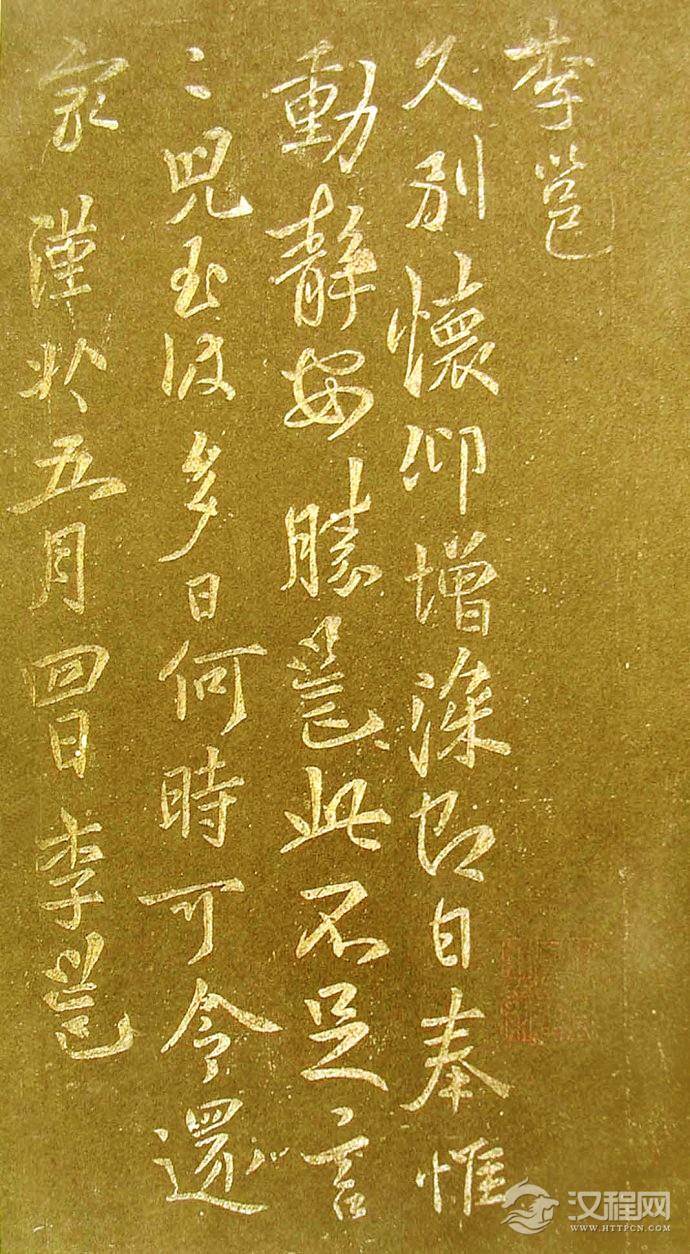 李邕
久別懷仰增深即日奉惟
動靜安勝邕此不足言
〻兒至彼多日何時可令還
家謹於五月四日李邕
汉程网
WWW.HTTPCN.COM